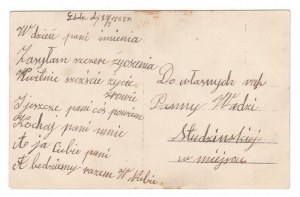 W dzień pani imienia
Zasyłam szczere życzenia
szczęście życie
zdrowie
I jeszcze pani coś powiem
Kochaj pani mnie
A ja Ciebie pani
A będziemy razem W Niebie
Do własnych rąk
Panny Wadzi
Studzińskiej
w miejscu